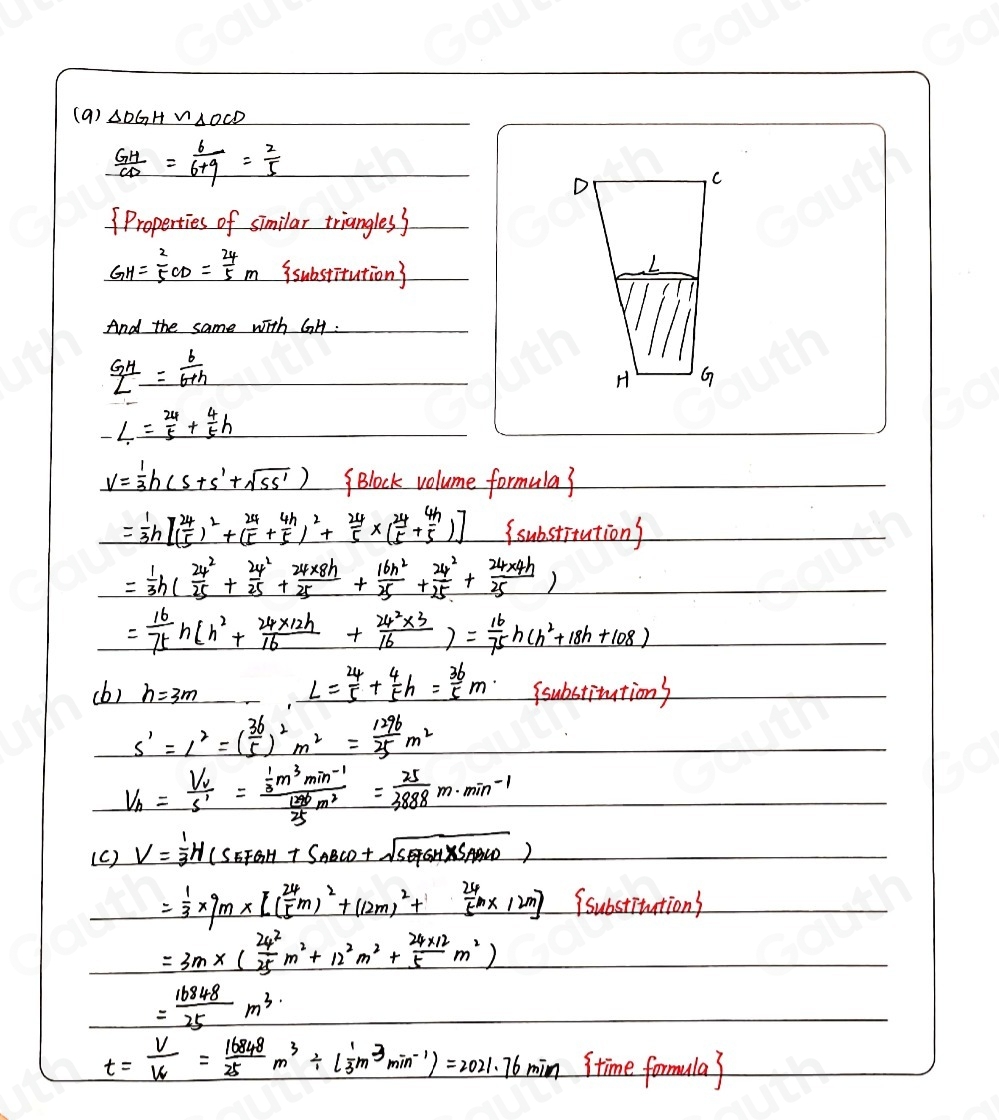 (a) △OGH ∽ △OCD
GH/CD = 6/(6+9) = 2/5
{Properties of similar triangles}
GH = 2/5 CD = 24/5 m {substitution}
And the same with GH:
GH/L = 6/(6+h)
L = 24/5 + 4/5 h
D C
L
H G
V = 1/3 h (S + S' + √SS') {Block volume formula}
= 1/3 h [(24/5)² + (24/5 + 4h/5)² + 24/5 × (24/5 + 4h/5)] {substitution}
= 1/3 h (24²/25 + 24²/25 + 24×8h/25 + 16h²/25 + 24²/25 + 24×4h/25)
= 16/75 h [h² + 24×12h/16 + 24²×3/16) = 16/75 h (h² + 18h + 108)
(b) h = 3m L = 24/5 + 4/5 h = 36/5 m. {substitution}
S' = l² = (36/5)² m² = 1296/25 m²
Vh = Vv/S' = (1/3 m³ min⁻¹)/(1296/25 m²) = 25/3888 m·min⁻¹
(c) V = 1/3 H (SEFGH + SABCD + √SEFGH×SABCD)
= 1/3 × 9m × [(24/5 m)² + (12m)² + 24/5 m × 12m] {substitution}
= 3m × (24²/25 m² + 12² m² + 24×12/5 m²)
= 16848/25 m³.
t = V/Vv = 16848/25 m³ ÷ (1/3 m³ min⁻¹) = 2021.76 min {time formula}
Gauth